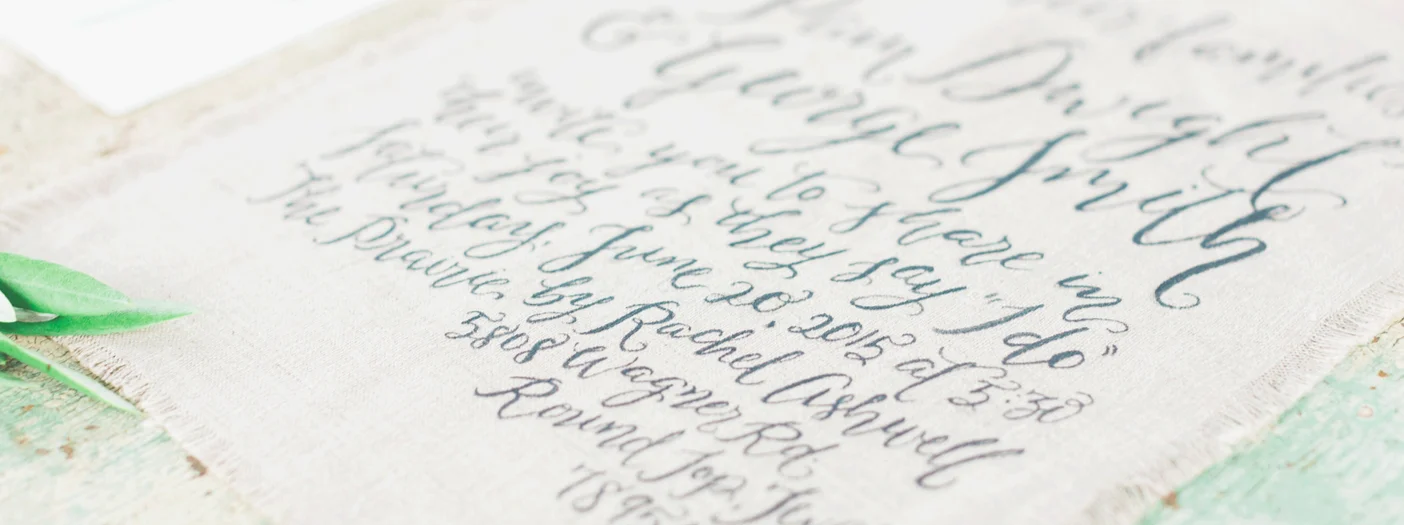 our families
Dwight
& George Smith
invite you to share in
their joy as they say "I do"
Saturday, June 20, 2015 at 5:30
The Prairie by Rachel Ashwell
5808 Wagner Rd.
Round Top,